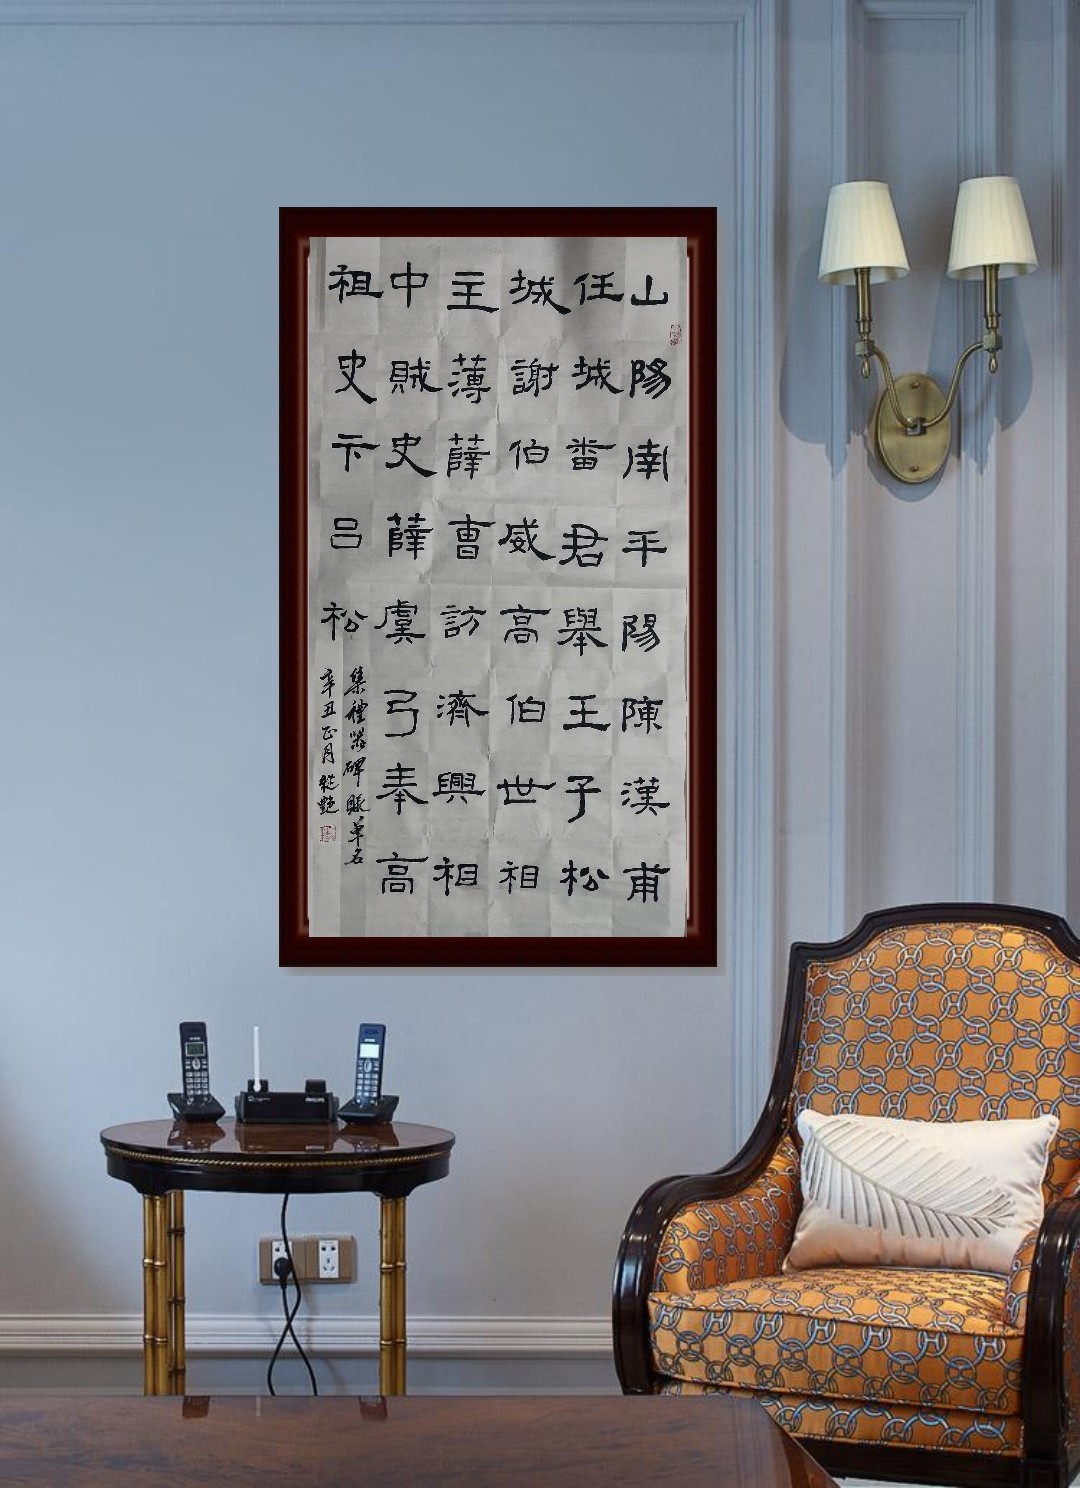 山陽南平陽陳漢甫
任城番君舉王子松
城謝伯威高伯世相
主薄薛曹訪濟興相
中賊史薛虞弓奉高
祖史卞呂松
集禮器碑賑單名
辛丑正月
PHILIPS